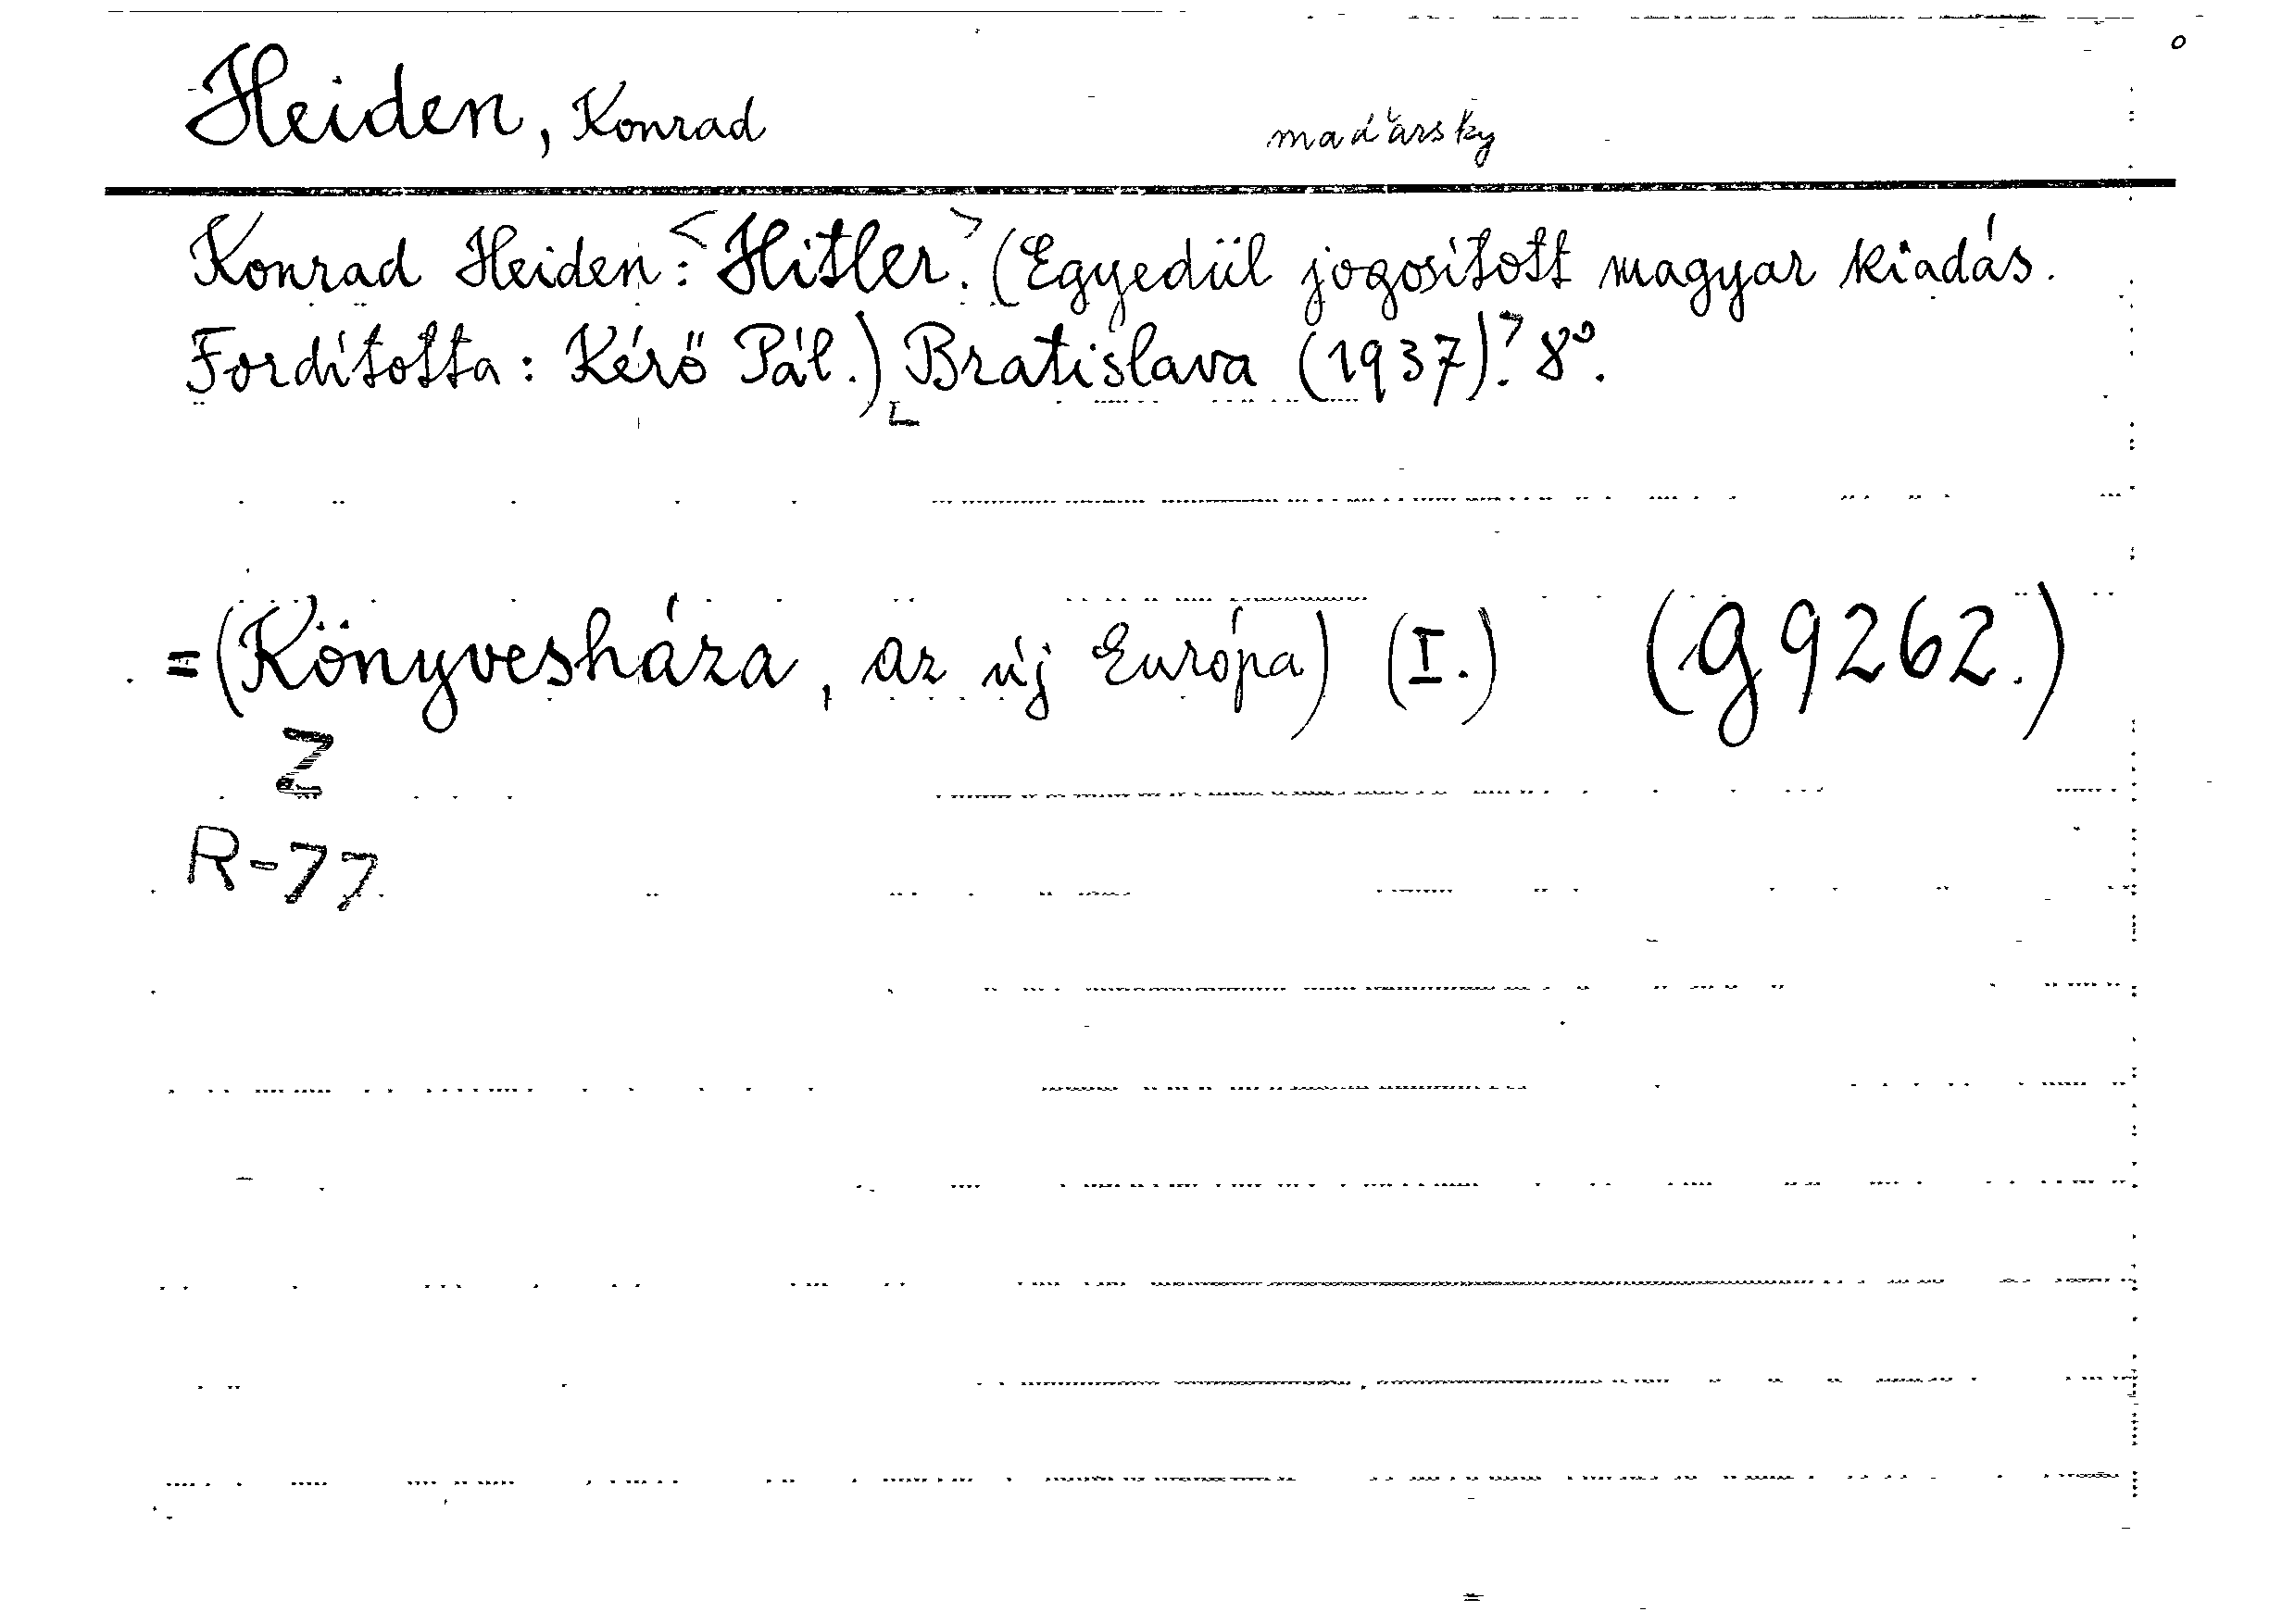 Heiden, Konrad maďarsky
Konrad Heiden: <Hitler.> (Egyedül jogosított magyar kiadás.
Fordította: Kérő Pál.) Bratislava (1937). 8°.
=(Könyvesháza, az új Európa) (I.) (G 9262.)
Z
R-77